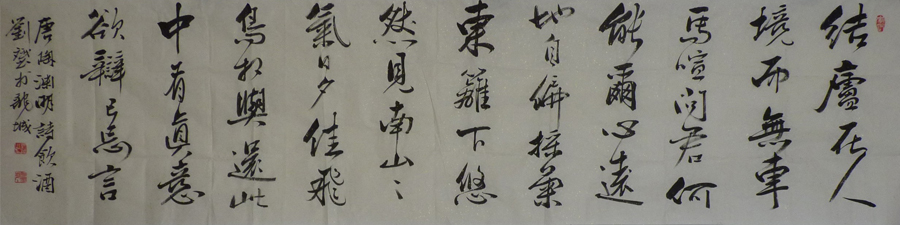 結廬在人
境而無車
馬喧問君何
能爾心遠
地自偏採菊
東籬下悠
然見南山々
氣日夕佳飛
鳥相與還此
中有真意
欲辯已忘言
唐陶渊明詩飲酒
劉於龍城